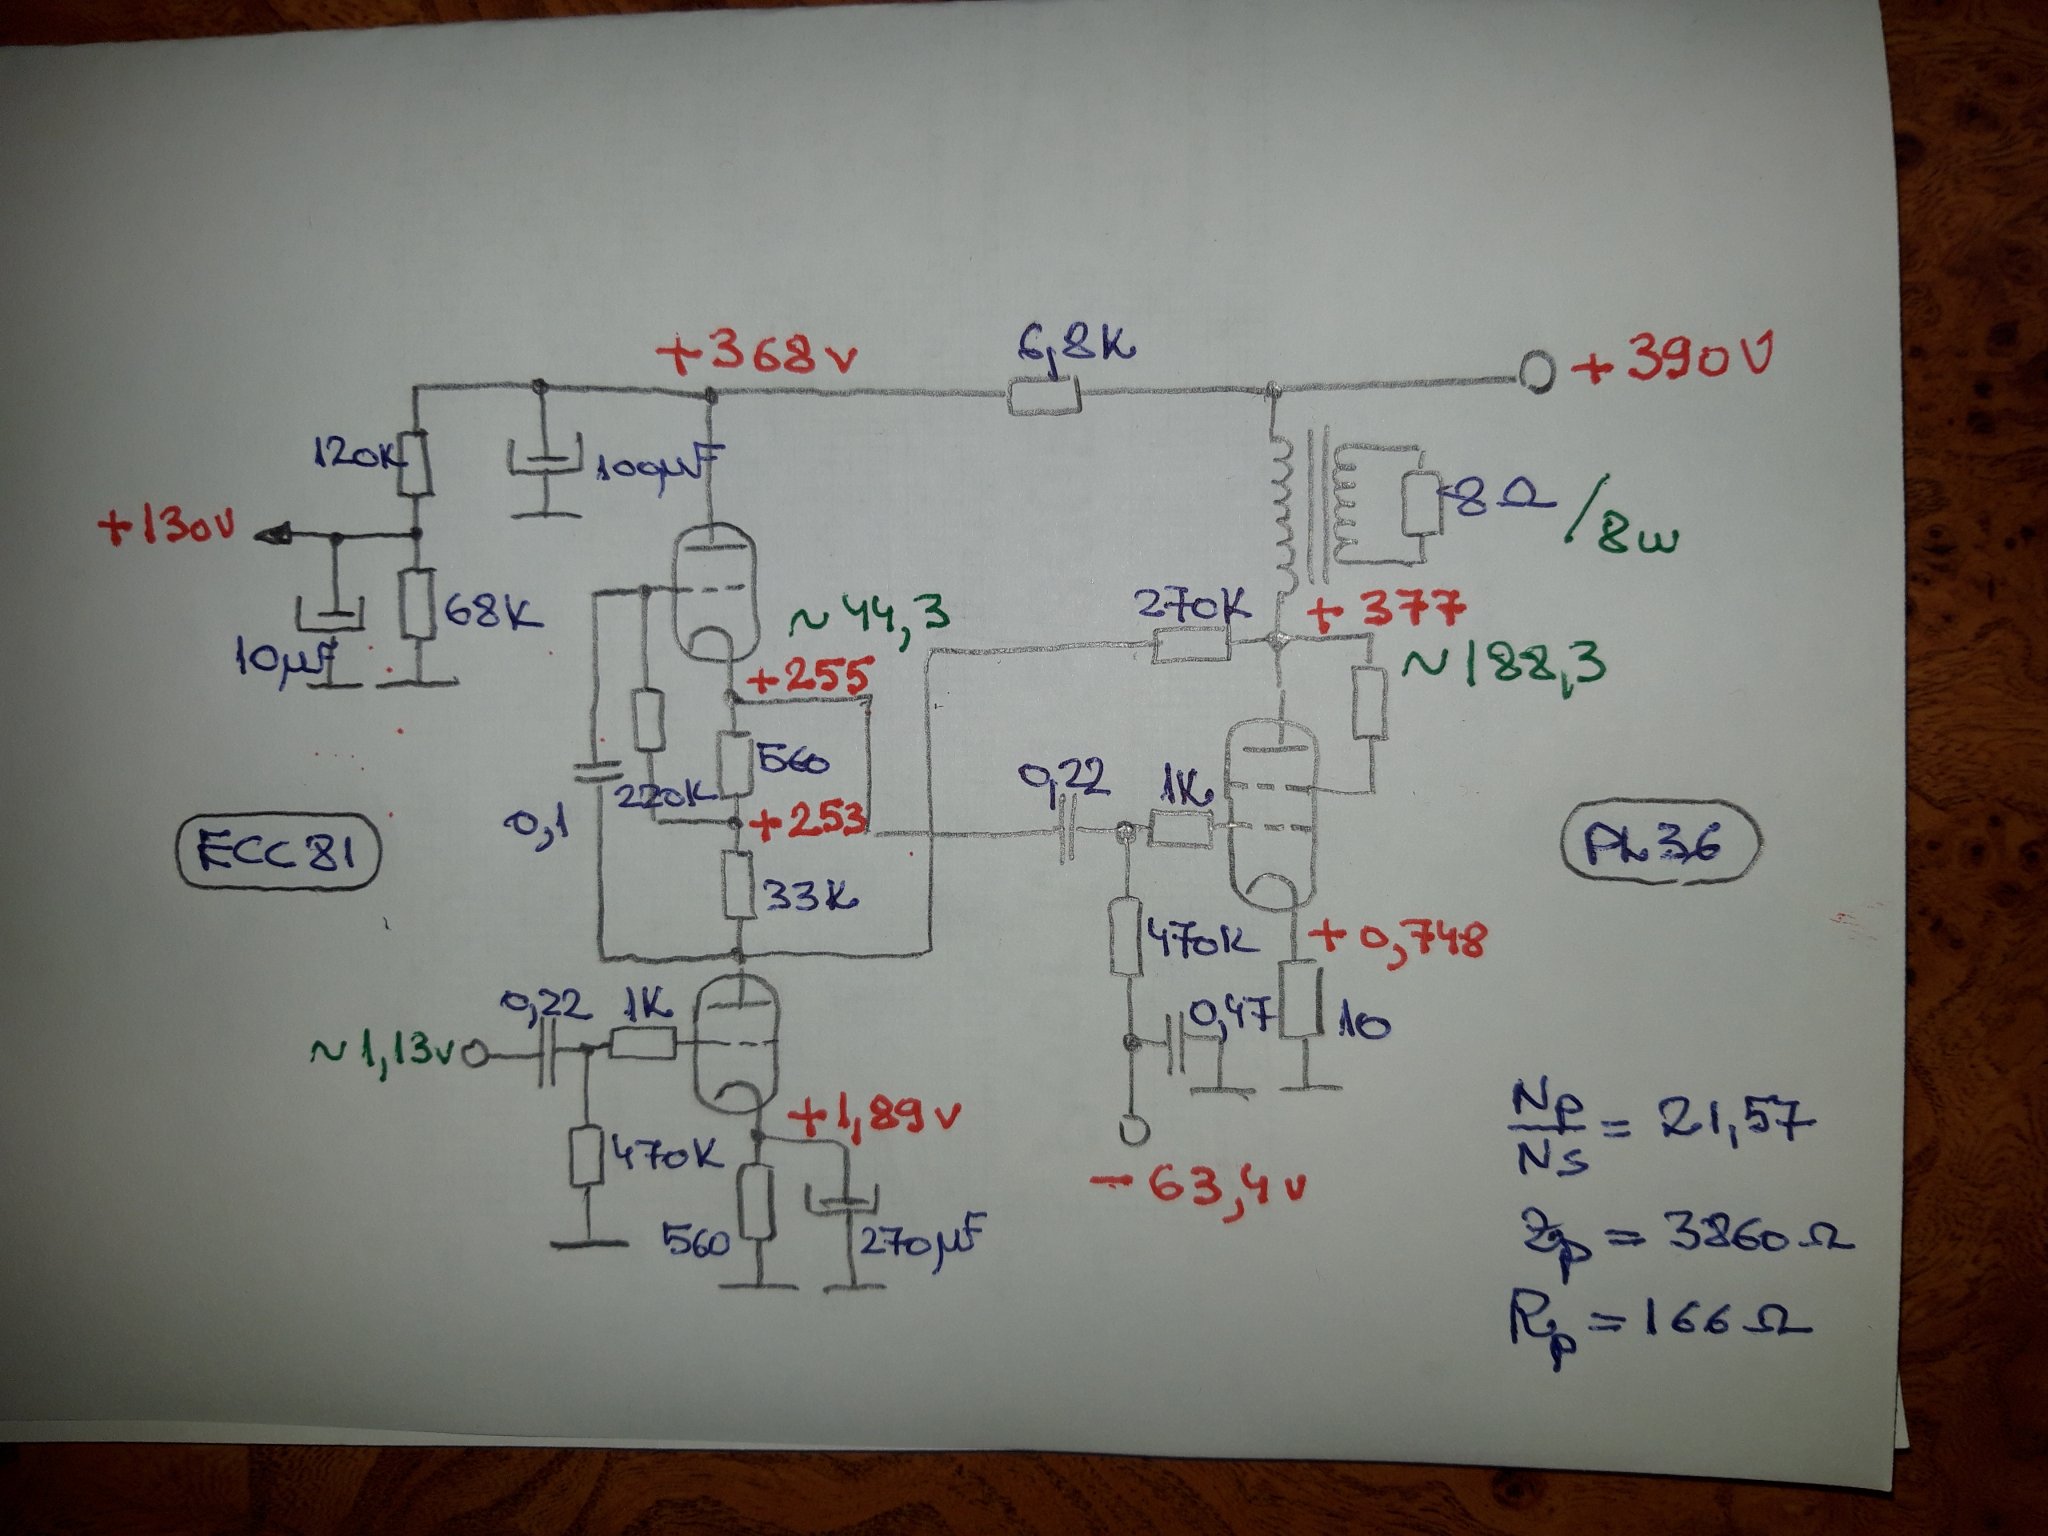 +368v
6,8K
+390V
120K
100µF
8Ω /8w
+130v
10µF
68K
~44,3
+255
270K
+377
~188,3
560
220K
+253
0,1
33K
ECC81
0,22
1K
PL36
470K
+0,748
0,47
10
-63,4v
~1,13v
0,22
1K
+1,89v
470K
560
270µF
Np/Ns = 21,57
Zp = 3860Ω
Rp = 166Ω